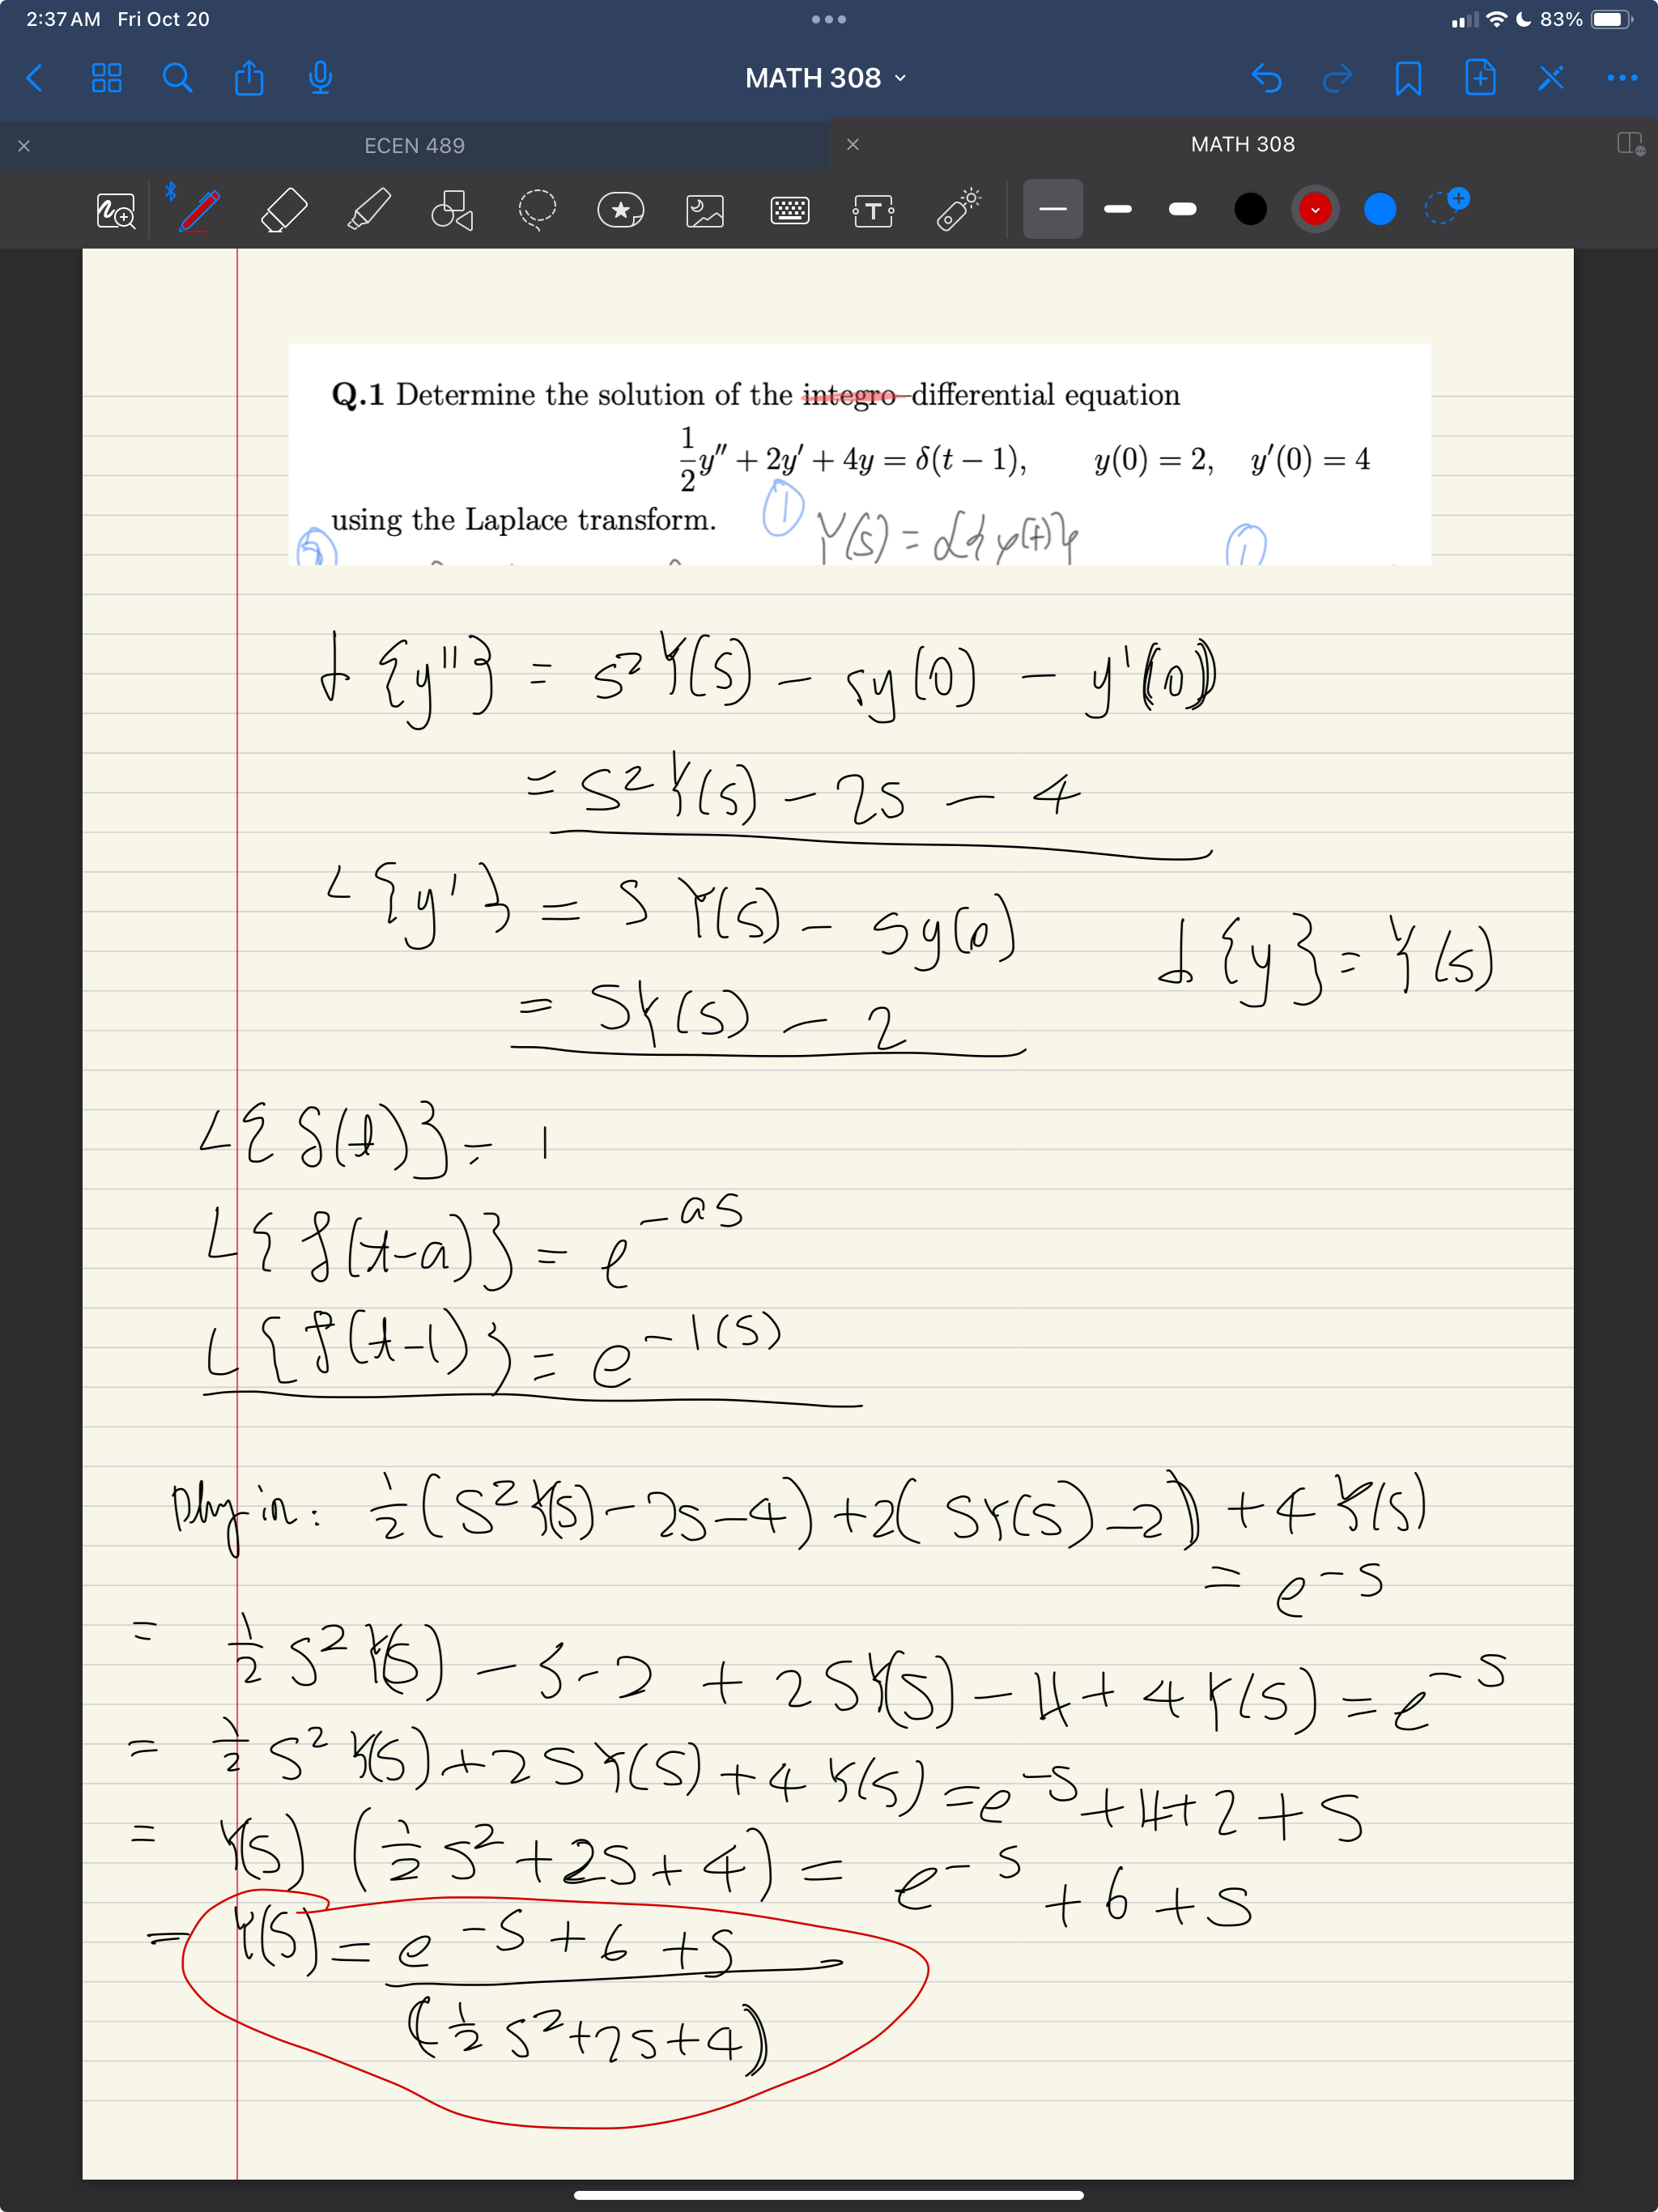 2:37 AM Fri Oct 20
83%
MATH 308
ECEN 489
MATH 308
T
Q.1 Determine the solution of the integro-differential equation
1/2 y″ + 2y′ + 4y = δ(t − 1), y(0) = 2, y′(0) = 4
using the Laplace transform.
① Y(s) = ℒ{y(t)}
①
ℒ{y''} = s²Y(s) − sy(0) − y'(0)
= s²Y(s) − 2s − 4
L{y'} = sY(s) − sy(0)
ℒ{y} = Y(s)
= sY(s) − 2
L{δ(t)} = 1
L{δ(t-a)} = e^-as
L{δ(t-1)} = e^-1(s)
Plug in: 1/2(s²Y(s) − 2s − 4) + 2(sY(s) − 2) + 4Y(s)
= e^-s
= 1/2 s²Y(s) − s − 2 + 2sY(s) − 4 + 4Y(s) = e^-s
= 1/2 s²Y(s) + 2sY(s) + 4Y(s) = e^-s + 4 + 2 + s
= Y(s) (1/2 s² + 2s + 4) = e^-s + 6 + s
= Y(s) = e^-s + 6 + s
(1/2 s² + 2s + 4)